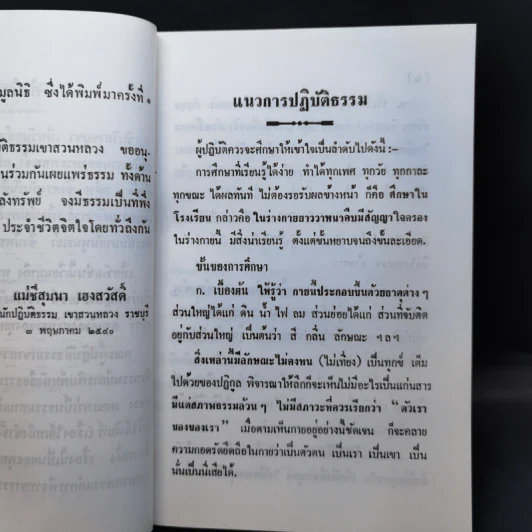 มูลนิธิ ซึ่งได้พิมพ์มาครั้งที่ ๑
ัติธรรมเขาสวนหลวง ขออนุ-
นรวมกันเผยแพร่ธรรม ทั้งด้าน
ลังทรัพย์ จงมีธรรมเป็นที่พึ่ง
ประจำชีวิตจิตใจโดยทั่วถึงกัน
แม่ชีสุมนา เฮงสวัสดิ์
นักปฏิบัติธรรม เขาสวนหลวง ราชบุรี
๓ พฤษภาคม ๒๕๔๐
แนวการปฏิบัติธรรม
ผู้ปฏิบัติควรจะศึกษาให้เข้าใจเป็นลำดับไปดังนี้ :-
การศึกษาที่เรียนรู้ได้ง่าย ทำได้ทุกเพศ ทุกวัย ทุกกาละ
ทุกขณะ ได้ผลทันที ไม่ต้องรอรับผลข้างหน้า ก็คือ ศึกษาใน
โรงเรียน กล่าวคือ ในร่างกายยาววาหนาคืบมีสัญญาใจครอง
ในร่างกายนี้ มีสิ่งน่าเรียนรู้ ตั้งแต่ชั้นหยาบจนถึงชั้นละเอียด.
ขั้นของการศึกษา
ก. เบื้องต้น ให้รู้ว่า กายนี้ประกอบขึ้นด้วยธาตุต่าง ๆ
ส่วนใหญ่ได้แก่ ดิน น้ำ ไฟ ลม ส่วนย่อยได้แก่ ส่วนที่จับติด
อยู่กับส่วนใหญ่ เป็นต้นว่า สี กลิ่น ลักษณะ ฯลฯ
สิ่งเหล่านี้มีลักษณะไม่คงทน (ไม่เที่ยง) เป็นทุกข์ เต็ม
ไปด้วยของปฏิกูล พิจารณาให้ลึกก็จะเห็นไม่มีอะไรเป็นแก่นสาร
มีแต่สภาพธรรมล้วน ๆ ไม่มีสภาวะที่ควรเรียกว่า “ ตัวเรา
ของของเรา ” เมื่อตามเห็นกายอยู่อย่างนี้ชัดเจน ก็จะคลาย
ความกอดรัดยึดถือในกายว่าเป็นตัวตน เป็นเรา เป็นเขา เป็น
นั่นเป็นนี่เสียได้.